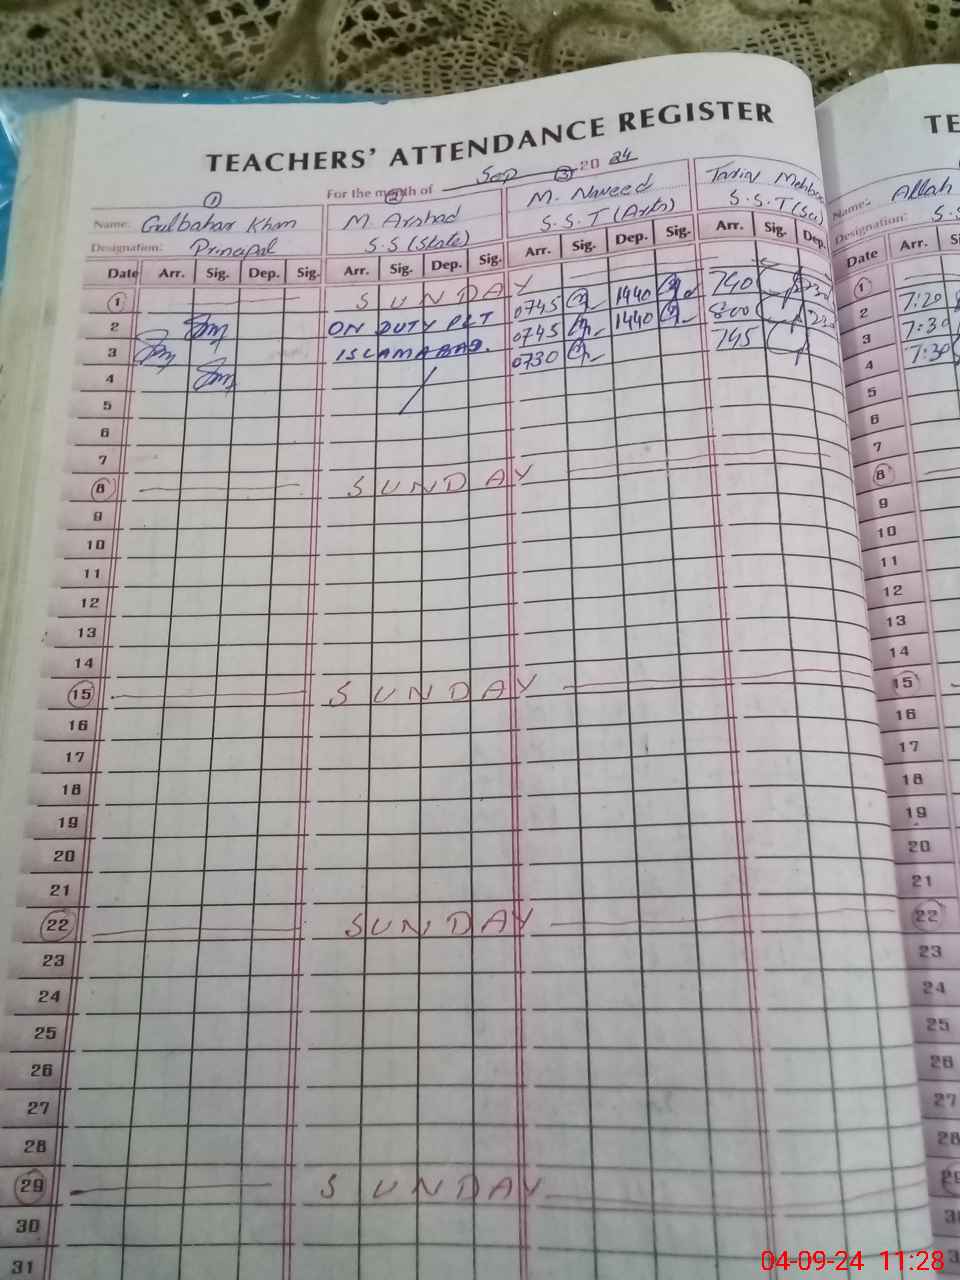 TEACHERS' ATTENDANCE REGISTER
For the month of Sep 20 24
1 2 3
Name: Gulbahar Khan M. Arshad M. Naveed Tariq
Designation: Principal S.S (State) S.S.T (Arts) S.S.T (Sci)
Date Arr. Sig. Dep. Sig. Arr. Sig. Dep. Sig. Arr. Sig. Dep. Sig. Arr. Sig. Dep.
1 SUNDAY
2 ON DUTY 0745 1440 740
3 ISLAMABAD. 0745 1440 800
4 0730 745
5
6
7
8 SUNDAY
9
10
11
12
13
14
15 SUNDAY
16
17
18
19
20
21
22 SUNDAY
23
24
25
26
27
28
29 SUNDAY
30
31
TE
Name: Allah
Designation: S.S
Date Arr.
1
2 7:20
3 7:30
4 7:30
5
6
7
8
9
10
11
12
13
14
15
16
17
18
19
20
21
22
23
24
25
26
27
28
29
04-09-24 11:28